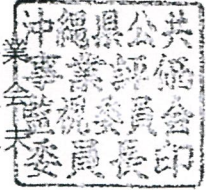 沖縄県公共
事業評価
監視委員会
委員長印
業会夫